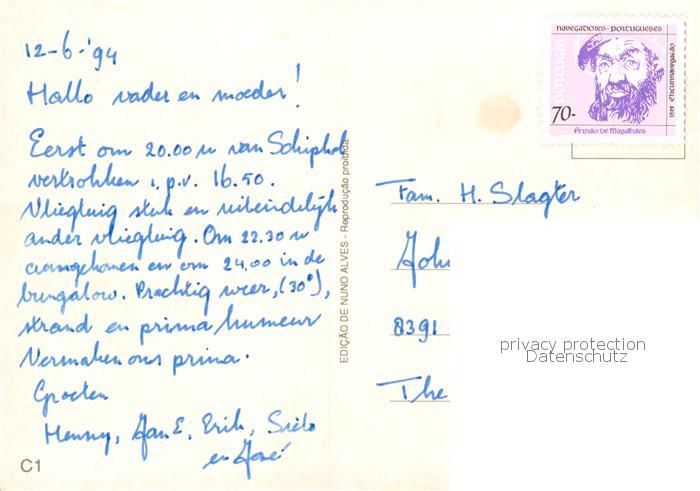 12-6-'94
Hallo vader en moeder!
Eerst om 20.00 u van Schiphol
vertrokken i.p.v. 16.50.
Vliegtuig stuk en uiteindelijk
ander vliegtuig. Om 22.30 u
aangekomen en om 24.00 in de
bungalow. Prachtig weer, (30°),
strand en prima humeur
Vermaken ons prima.
Groeten
Henny, Jan E, Erik, Sielo
en José
C1
EDIÇÃO DE NUNO ALVES - Reprodução proibida
NAVEGADORES PORTUGUESES
PORTUGAL
1519 CIRCUM-NAVEGAÇÃO
70-
Fernão de Magalhães
Fam. H. Slagter
Joh
8391
The
privacy protection
Datenschutz